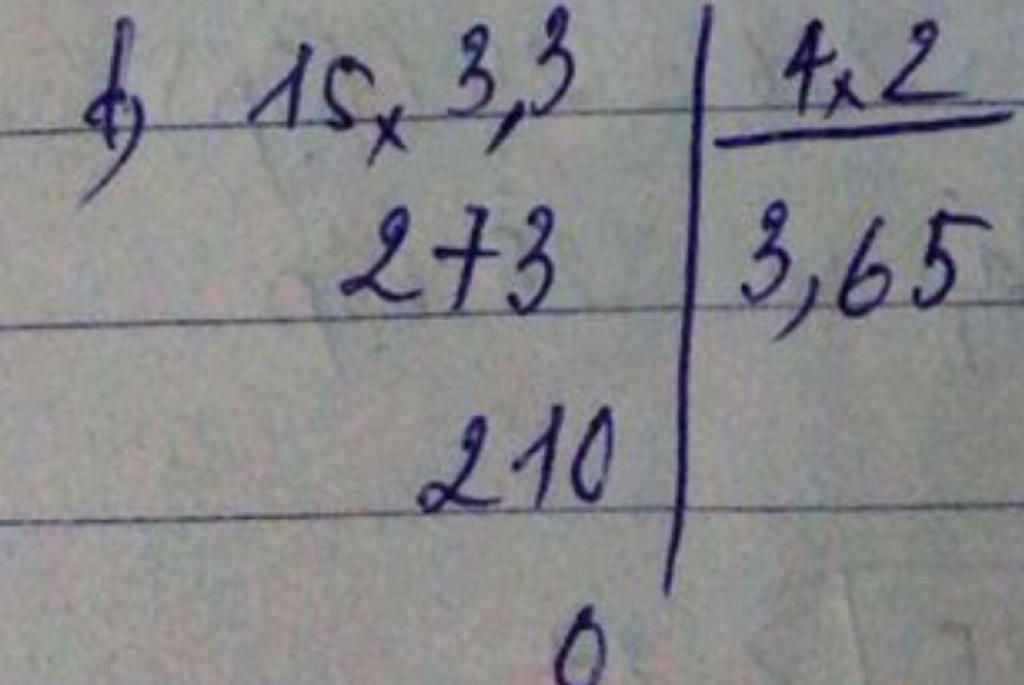 d) 15x3,3 | 4x2
273 | 3,65
210
0